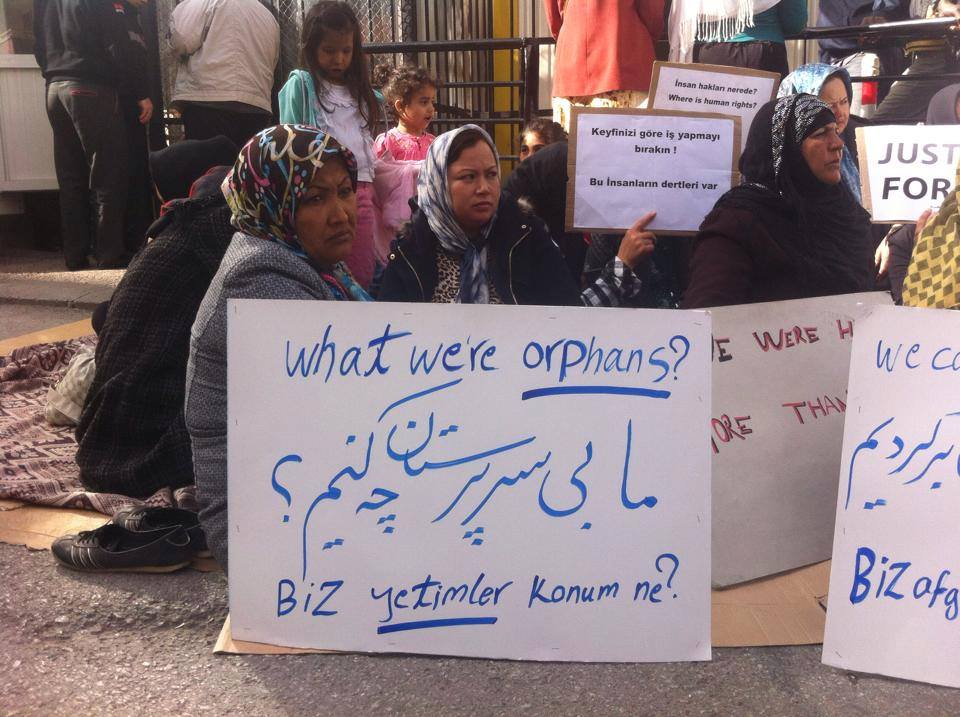 İnsan hakları nerede?
Where is human rights?
Keyfinizi göre iş yapmayı
bırakın !
Bu İnsanların dertleri var
JUST
FOR
What we're orphans?
ما بی سرپرستان چه کنیم؟
Biz yetimler konum ne?
WE WERE H
MORE THAN
We ca
بر کردیم
Biz afg